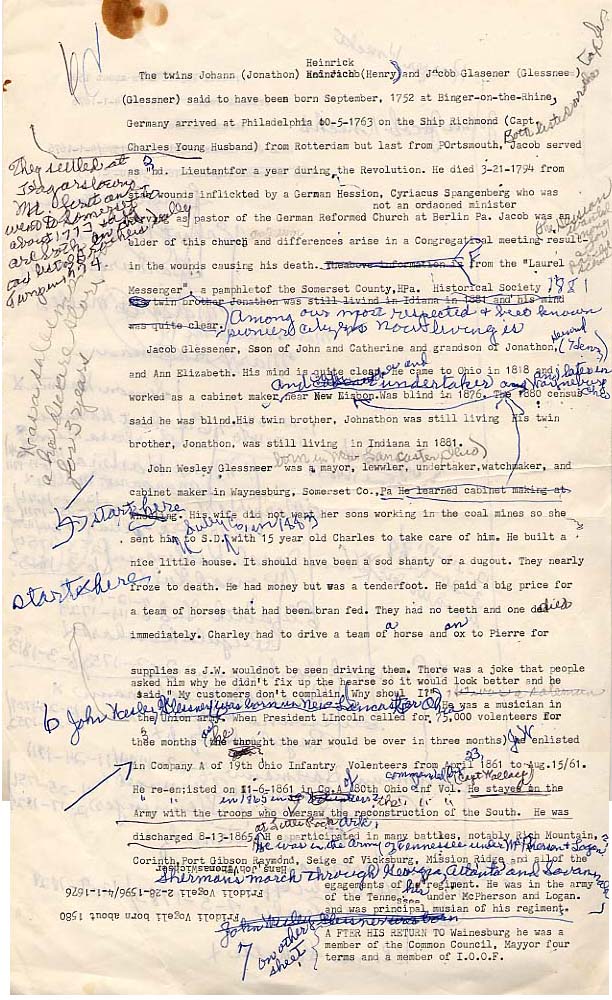 Heinrick
The twins Johann (Jonathon) Heinrichh(Henry) and Jacob Glasener (Glessnee)
(Glessner) said to have been born September, 1752 at Binger-on-the-Rhine,
Germany arrived at Philadelphia 10-5-1763 on the Ship Richmond (Capt.
Both listed on
Charles Young Husband) from Rotterdam but last from POrtsmouth, Jacob served
They settled at
Hagarstown
Md. first and
went to Somerset
about 1777
as 2nd. Lieutantfor a year during the Revolution. He died 3-21-1794 from
wounds inflickted by a German Hession, Cyriacus Spangenberg who was
not an ordaoned minister
serving as pastor of the German Reformed Church at Berlin Pa. Jacob was an
elder of this church and differences arise in a Congregational meeting result-
in the wounds causing his death. Theabove information is from the "Laurel
Messenger", a pamphletof the Somerset County,HPa. Historical Society 1881
twin brother Jonathon was still living in Idiana in 1881 and his mind
was quite clear. Among our most respected & best known
pioneer citizens now living is
Jacob Glessener, Sson of John and Catherine and grandson of Jonathon, (Henry)
and Ann Elizabeth. His mind is quite clear. He came to Ohio in 1818 and
and undertaker and later in
Waynesburg
Ohio
worked as a cabinet maker, near New Lisbon. Was blind in 1876. The 1880 census
said he was blind.His twin brother, Johnathon was still living His twin
brother, Jonathon, was still living in Indiana in 1881.
born in New Lancaster, Ohio)
for 3 years
John Wesley Glessneer was a mayor, lewwler, undertaker,watchmaker, and
cabinet maker in Waynesburg, Somerset Co.,Pa He learned cabinet making at
5 start here
. His wife did not want her sons working in the coal mines so she
Sully Co. in 1883
sent him to S.D. with 15 year old Charles to take care of him. He built a
nice little house. It should have been a sod shanty or a dugout. They nearly
start here
froze to death. He had money but was a tenderfoot. He paid a big price for
a team of horses that had been bran fed. They had no teeth and one died
immediately. Charley had to drive a team of a horse and an ox to Pierre for
supplies as J.W. wouldnot be seen driving them. There was a joke that people
asked him why he didn't fix up the hearse so it would look better and he
said," My customers don't complain. Why shoul I?"
6 John Wesley Glessner was born in New Lancaster Ohio
He was a musician in
the Union army. When President LIncoln called for 75,000 volunteers for
thee months (he thought the war would be over in three months) J.W. enlisted
in Company A of 19th Ohio Infantry Volunteers from April 1861 to Aug.15/61.
commanded by
Capt Wallace)
He re-en;isted on 11-6-1861 in Co.A of 80th Ohio Inf Vol. He stayed on the
Army with the troops who oversaw the reconstruction of the South. He was
at Little Rock Ark.
discharged 8-13-1865. H e participated in many battles, notably Rich Mountain,
He was in the Army of Tennessee under McPherson & Logan
Corinth,Port Gibson Raymond, Seige of Vicksburg, Mission Ridge and allof the
Shermans march through Georgia, Atlanta and Savanah
egagements of his regiment. He was in the army
of the Tennessee under McPherson and Logan.
and was principal musian of his regiment.
Fridli Vogeli 2-28-1596/4-1-1676
Fridli Vogeli born about 1580
John Wesley Glessner was born
7 on other
sheet
A FTER HIS RETURN TO Wainesburg he was a
member of the Common Council, Mayyor four
terms and a member of I.O.O.F.